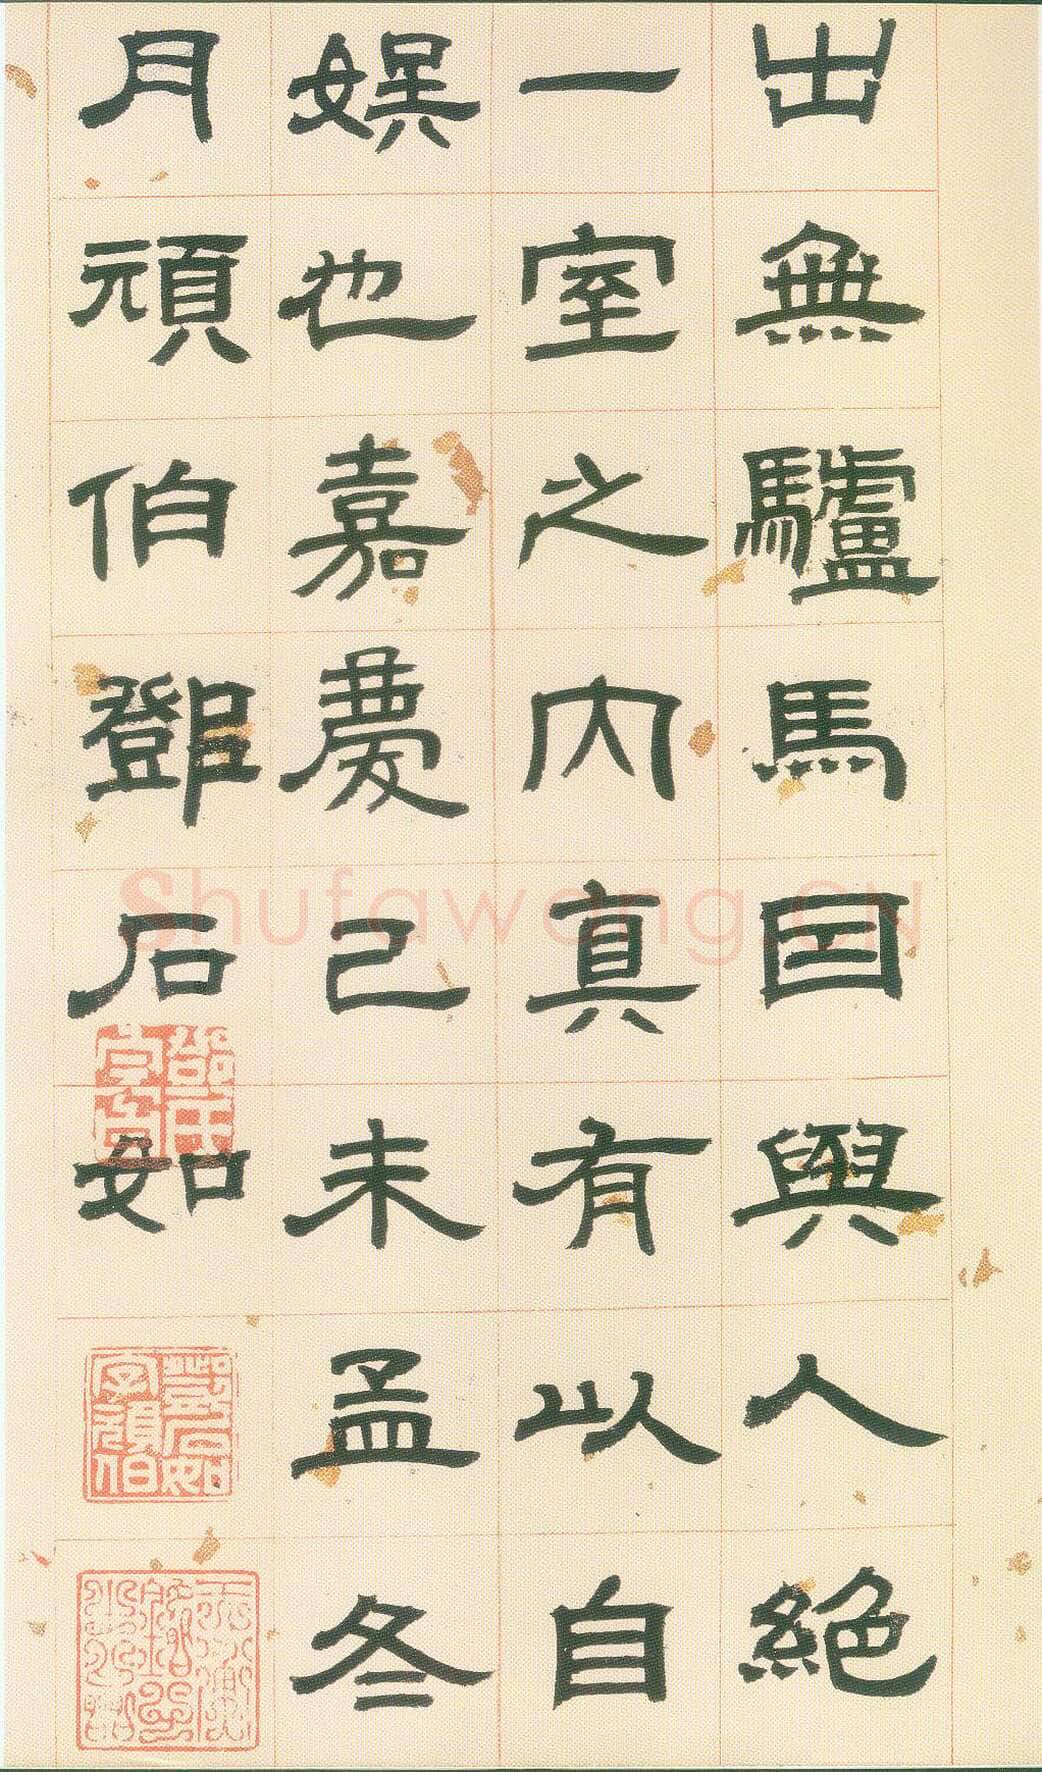 出無驢馬因與人絕
一室之内真有以自
娛也嘉慶己未孟冬
月頑伯鄧石如
鄧石如字頑伯
Shufawang.CN